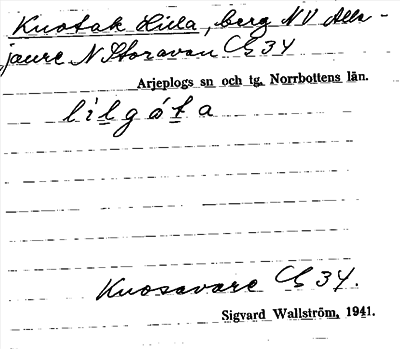 Kuotak Lilla, berg NV Alla-
jaure N Storavan Cg 34
Arjeplogs sn och tg. Norrbottens län.
lilgóta
Kuosavare Cg 34.
Sigvard Wallström, 1941.